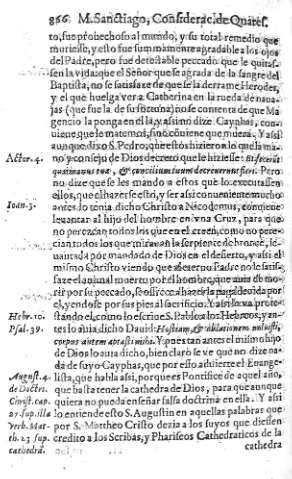 866 M. Sanctiago, Considerac. de Quares.
to, fue prouechoso al mundo, y su total remedio que
muriesse, y esto fue summamente agradable a los ojos
del Padre, pero fue detestable peccado que le quitas-
sen la vida: que el Señor que se agrada de la sangre del
Baptista, no se satisfaze de que se la derrame Herodes,
y el que huelga ver a Catharina en la rueda de naua-
jas (que fue la de su fortuna) no se contenta de que Ma-
gencio la ponga en ella, y assi no dize Cayphas, con-
uiene que le matemos, sino conuiene que muera. Y assi
aunque dixo S. Pedro, que estos hizieron lo que la ma-
Actor. 4. no y consejo de Dios decretò que le hiziesse: 
quæ manus tua, & consilium tuum decreuerunt fieri. Pero
no dize que se les mando a estos que lo executassen
ellos, que el hazerse esso, y ser assi conueniente mucho
Ioan. 3. antes lo tenia dicho Christo a Nicodemus, conuiene
leuantar al hijo del hombre en vna Cruz, para que
no perezcan todos los que en el creen, como no pere-
cian todos los que mirauan la serpiente de bronce, le-
uantada por mandado de Dios en el desierto, y assi el
mismo Christo viendo que a la eterno Padre no le satis-
faze el animal muerto por el hombre, que auia de mo-
rir por su peccado, se offrece a hazer la paga deuida por
el, yendose por sus pies al sacrificio. Y assi lo va prote-
Hebr. 10. stando el, como lo escriue S. Pablo a los Hebreos, y an-
Psal. 39. tes lo auia dicho Dauid: Hostiam, & oblationem noluisti,
corpus autem aptasti mihi. Y pues tan antes el mismo hijo
de Dios lo auia dicho, bien claro se ve que no dize na-
da de suyo Cayphas, que por esso aduierte el Euange-
August. 4. lista, que habla assi, porque es Pontifice de aquel año,
de Doctr. que basta tener la cathedra de Dios, para que aunque
Christ. cap. quiera no pueda enseñar falsa doctrina en ella. Y assi
27. sup. illa lo entiende esto S. Augustin en aquellas palabras que
verb. Mat- por S. Mattheo Cristo dezia a los suyos que diessen
th. 23 sup credito a los Scribas, y Phariseos Cathedraticos de la
cathedrâ. cathedra